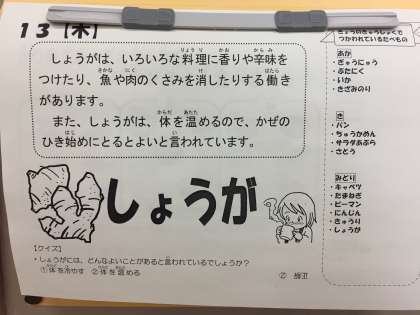 13【木】
しょうがは、いろいろな料理に香りや辛味を
つけたり、魚や肉のくさみを消したりする働き
があります。
また、しょうがは、体を温めるので、かぜの
ひき始めにとるとよいと言われています。
しょうが
【クイズ】
・しょうがには、どんなよいことがあると言われているでしょうか?
①体を冷やす ②体を温める
正解 ②
きょうのきゅうしょくで
つかわれているたべもの
あか
・ぎゅうにゅう
・ぶたにく
・いか
・きざみのり
き
・パン
・ちゅうかめん
・サラダあぶら
・さとう
みどり
・キャベツ
・たまねぎ
・ピーマン
・にんじん
・きゅうり
・しょうが